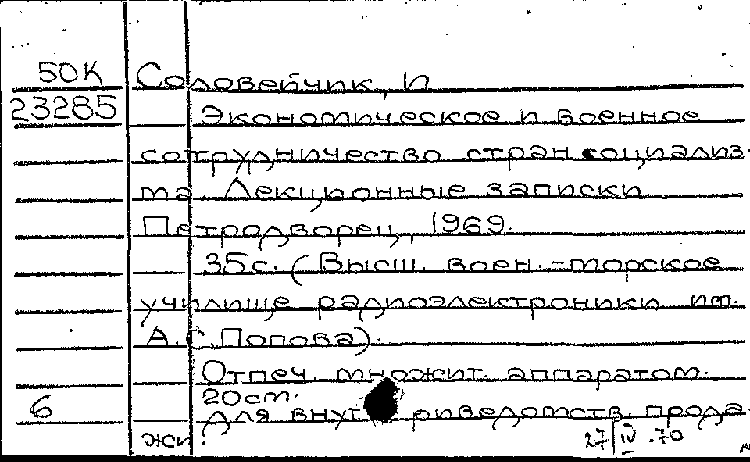 50К Соловейчик, И
23285 Экономическое и военное
сотрудничество стран социализ-
ма Лекционные записки
Петродворец, 1969.
35с. (Высш. воен.-морское
училище радиоэлектроники им.
А.С. Попова).
Отпеч. множит. аппаратом.
20см.
6 Для внут риведомств. прода
жи.
27/IV.70